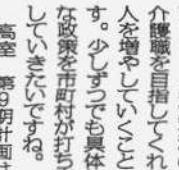 介護職を目指してくれ
人を増やしていくこと
す。少しずつでも具体
な政策を市町村が打ち
していきたいですね。
高室　第９期計画は